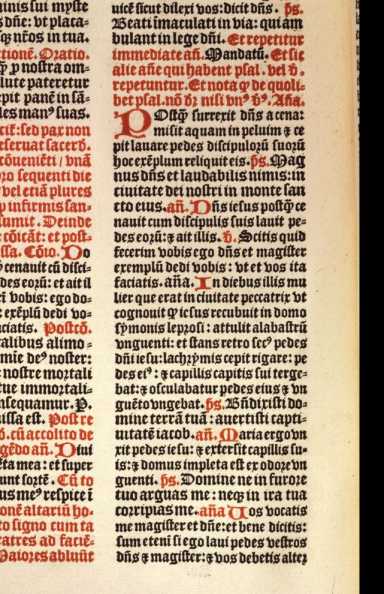 ninis sui myste
s dñe: vt placa-
sq3 nr̄os in tua.
ctionē. Oratio.
qp nostra om-
lute pateretur
epit panē in sā-
les man⁹ suas.
cit: sed pax non
seruat sacerd.
cōueniēti / vnā
oro sequenti die
vel etiā plures
p infirmis san-
lumit. Deinde
cōicāt: et post-
issa. Cōio. Do
cenauit cū disci-
des eorū: et ait il
cī vobis: ego do-
: exēplū dedi vo-
ciatis. Postcō.
calibus alimo-
miē de⁹ noster:
nostre mortali
tue immortali-
nsequamur. P.
nissa est. Post re
. cū accolito de
gēdo añ. Diui
ēta mea: et super
unt sortē. Cū to
us me⁹ respice ī
onē altariū ho-
to signo cum ta
ratres ad faciē-
Maiores abluūt
uicē sicut dilexi vos: dicit dñs . ps.
Beati īmaculati in via: qui am
bulant in lege dñi. Et repetitur
immediate añ. Mandatū. Et sic
alie añe qui habent psal. vel v̄.
repetuntur. Et nota q̄ de quoli-
bet psal. nō dr̄ nisi vn⁹ v̄⁹. Aña.
POstq̄ surrexit dñs a cena:
misit aquam in peluim ⁊ ce
pit lauare pedes discipulorū suorū
hoc exēplum reliquit eis. ps. Mag
nus dñs et laudabilis nimis: in
ciuitate dei nostri in monte san
cto eius. añ. Dñs iesus postq̄ ce
nauit cum discipulis suis lauit pe-
des eorū: ⁊ ait illis. v̄. Scitis quid
fecerim vobis ego dñs et magister
exemplū dedi vobis: vt et vos ita
faciatis. aña. In diebus illis mu
lier que erat in ciuitate peccatrix vt
cognouit q̄ iesus recubuit in domo
symonis leprosi: attulit alabastrū
vnguenti: et stans retro sec⁹ pedes
dñi iesu: lachrymis cepit rigare: pe
des ei⁹: ⁊ capillis capitis sui terge-
bat: ⁊ osculabatur pedes eius ⁊ vn
guēto vngebat. ps. Bñdixisti do-
mine terrā tuā: auertisti capti-
uitatē iacob. añ. Maria ergo vn
xit pedes iesu: ⁊ extersit capillis su-
is: ⁊ domus impleta est ex odore vn
guenti. ps. Domine ne in furore
tuo arguas me: neq3 in ira tua
corripias me. aña Uos vocatis
me magister et dñe: et bene dicitis:
sum etenī si ego laui pedes vestros
dñs ⁊ magister: ⁊ vos debetis alter